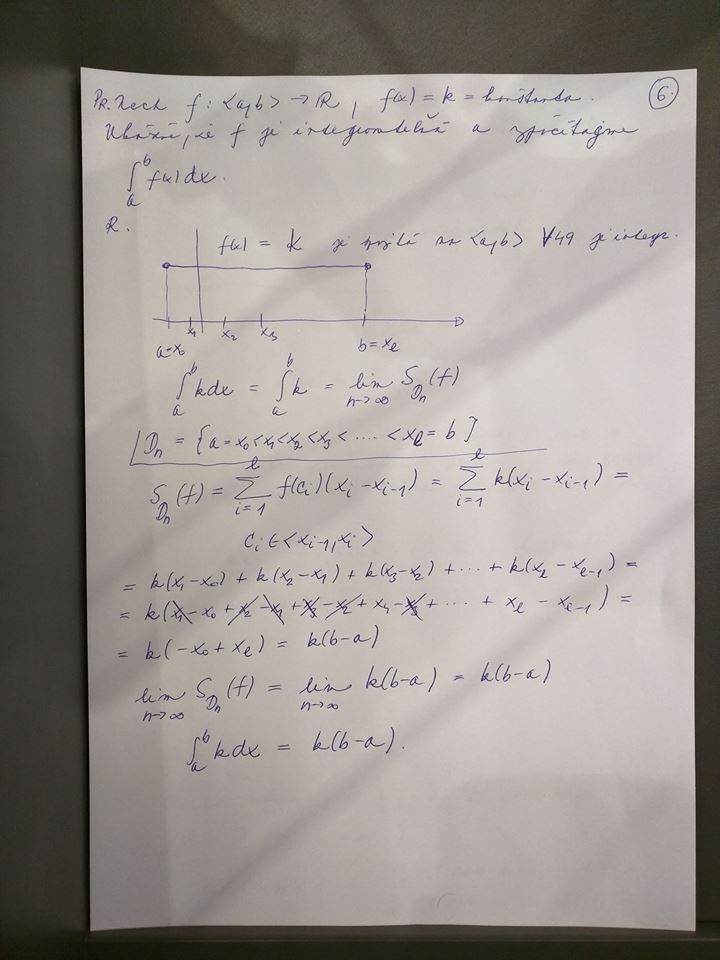 Pr. Nech f: <a,b> → R, f(x) = k = konštanta. 6.
Ukážme, že f je integrovateľná a vypočítajme
∫_a^b f(x) dx.
R.
f(x) = k je spojitá na <a,b> V49 je integr.
x₁ x₂ x₃
a=x₀ b = x_l
∫_a^b k dx = ∫_a^b k = lim_{n→∞} S_{D_n}(f)
D_n = {a = x₀ < x₁ < x₂ < x₃ < .... < x_l = b}
S_{D_n}(f) = ∑_{i=1}^l f(c_i)(x_i − x_{i−1}) = ∑_{i=1}^l k(x_i − x_{i−1}) =
c_i ∈ <x_{i−1}, x_i>
= k(x₁ − x₀) + k(x₂ − x₁) + k(x₃ − x₂) + ... + k(x_l − x_{l−1}) =
= k(x₁ − x₀ + x₂ − x₁ + x₃ − x₂ + x₄ − x₃ + ... + x_l − x_{l−1}) =
= k(−x₀ + x_l) = k(b−a)
lim_{n→∞} S_{D_n}(f) = lim_{n→∞} k(b−a) = k(b−a)
∫_a^b k dx = k(b−a).